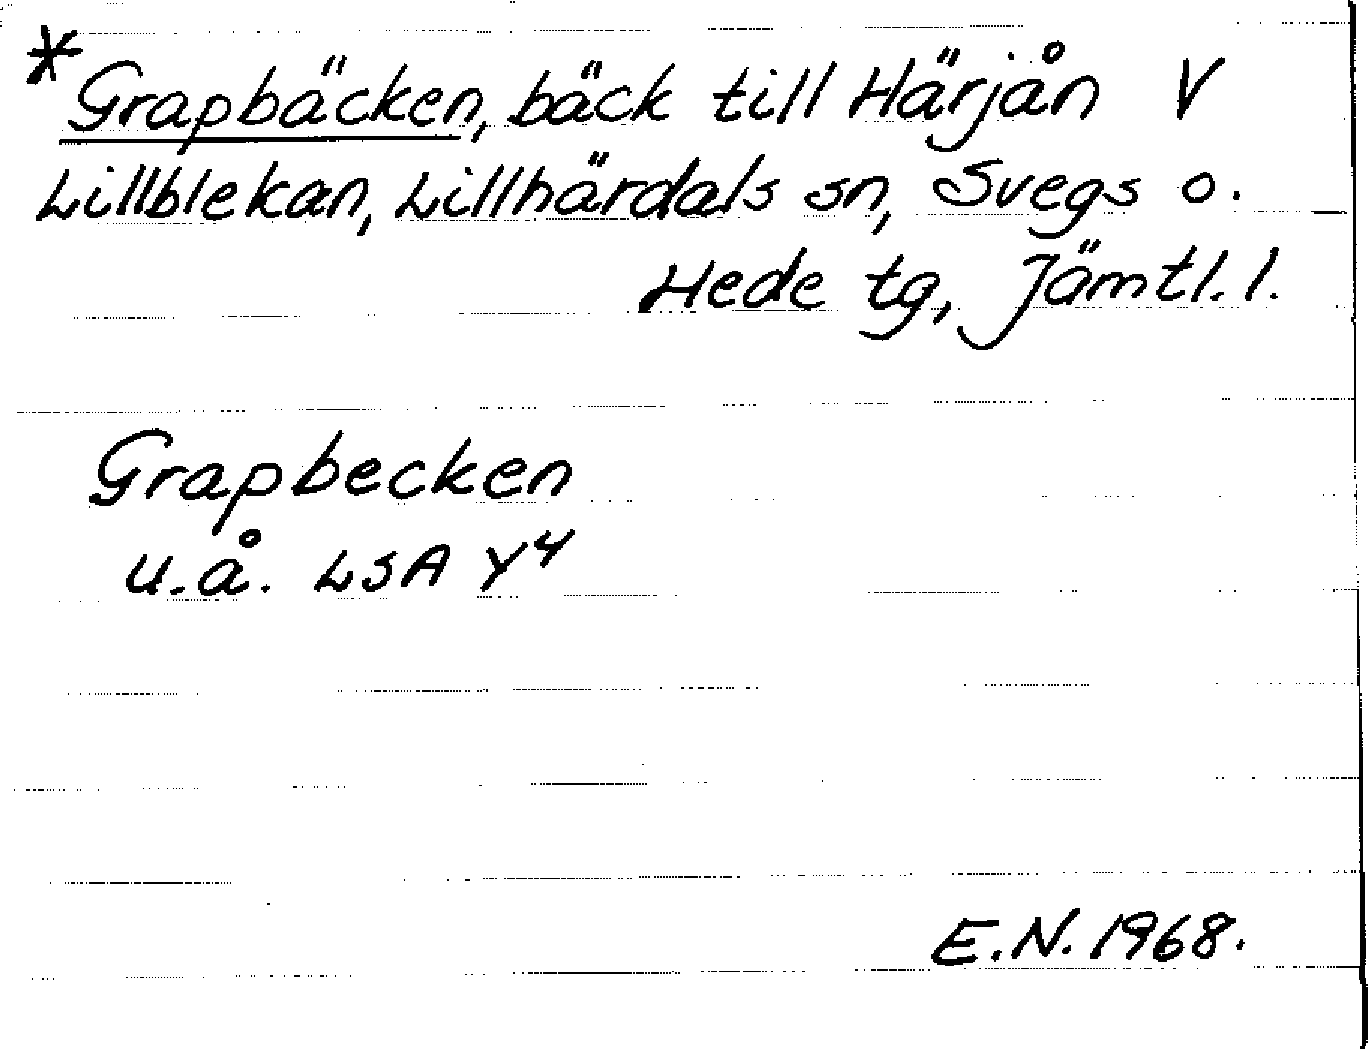 *Grapbäcken, bäck till Härjån V
Lillblekan, Lillhärdals sn, Svegs o.
Hede tg, Jämtl. l.
Grapbecken
u.å. LSA Y4
E.N. 1968.